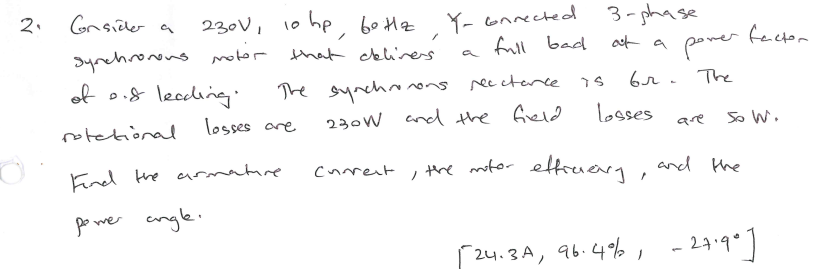 2. Consider a 230V, 10 hp, 60 Hz, Y-connected 3-phase
synchronous motor that delivers a full load at a power factor
of 0.8 leading. The synchronous reactance is 6Ω. The
rotational losses are 230W and the field losses are 50 W.
Find the armature current, the motor efficiency, and the
power angle.
[24.3A, 96.4%, -27.9°]